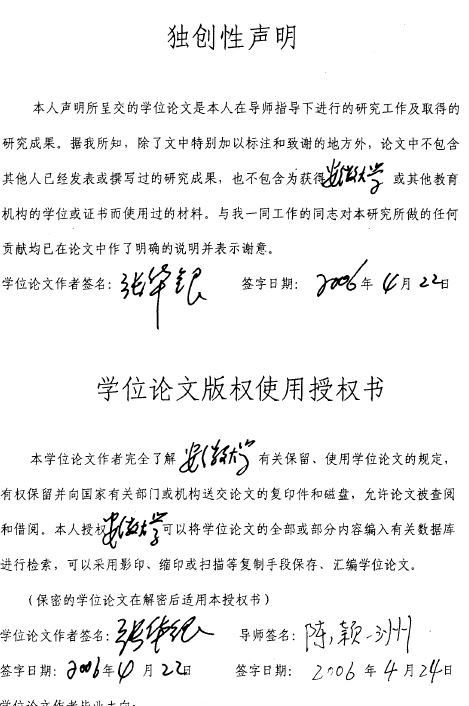 独创性声明
本人声明所呈交的学位论文是本人在导师指导下进行的研究工作及取得的
研究成果。据我所知，除了文中特别加以标注和致谢的地方外，论文中不包含
其他人已经发表或撰写过的研究成果，也不包含为获得安徽大学或其他教育
机构的学位或证书而使用过的材料。与我一同工作的同志对本研究所做的任何
贡献均已在论文中作了明确的说明并表示谢意。
学位论文作者签名：张华银 签字日期：2006年4月22日
学位论文版权使用授权书
本学位论文作者完全了解安徽大学有关保留、使用学位论文的规定，
有权保留并向国家有关部门或机构送交论文的复印件和磁盘，允许论文被查阅
和借阅。本人授权安徽大学可以将学位论文的全部或部分内容编入有关数据库
进行检索，可以采用影印、缩印或扫描等复制手段保存、汇编学位论文。
（保密的学位论文在解密后适用本授权书）
学位论文作者签名：张华银 导师签名：陈颖洲
签字日期：2006年4月22日 签字日期：2006年4月24日